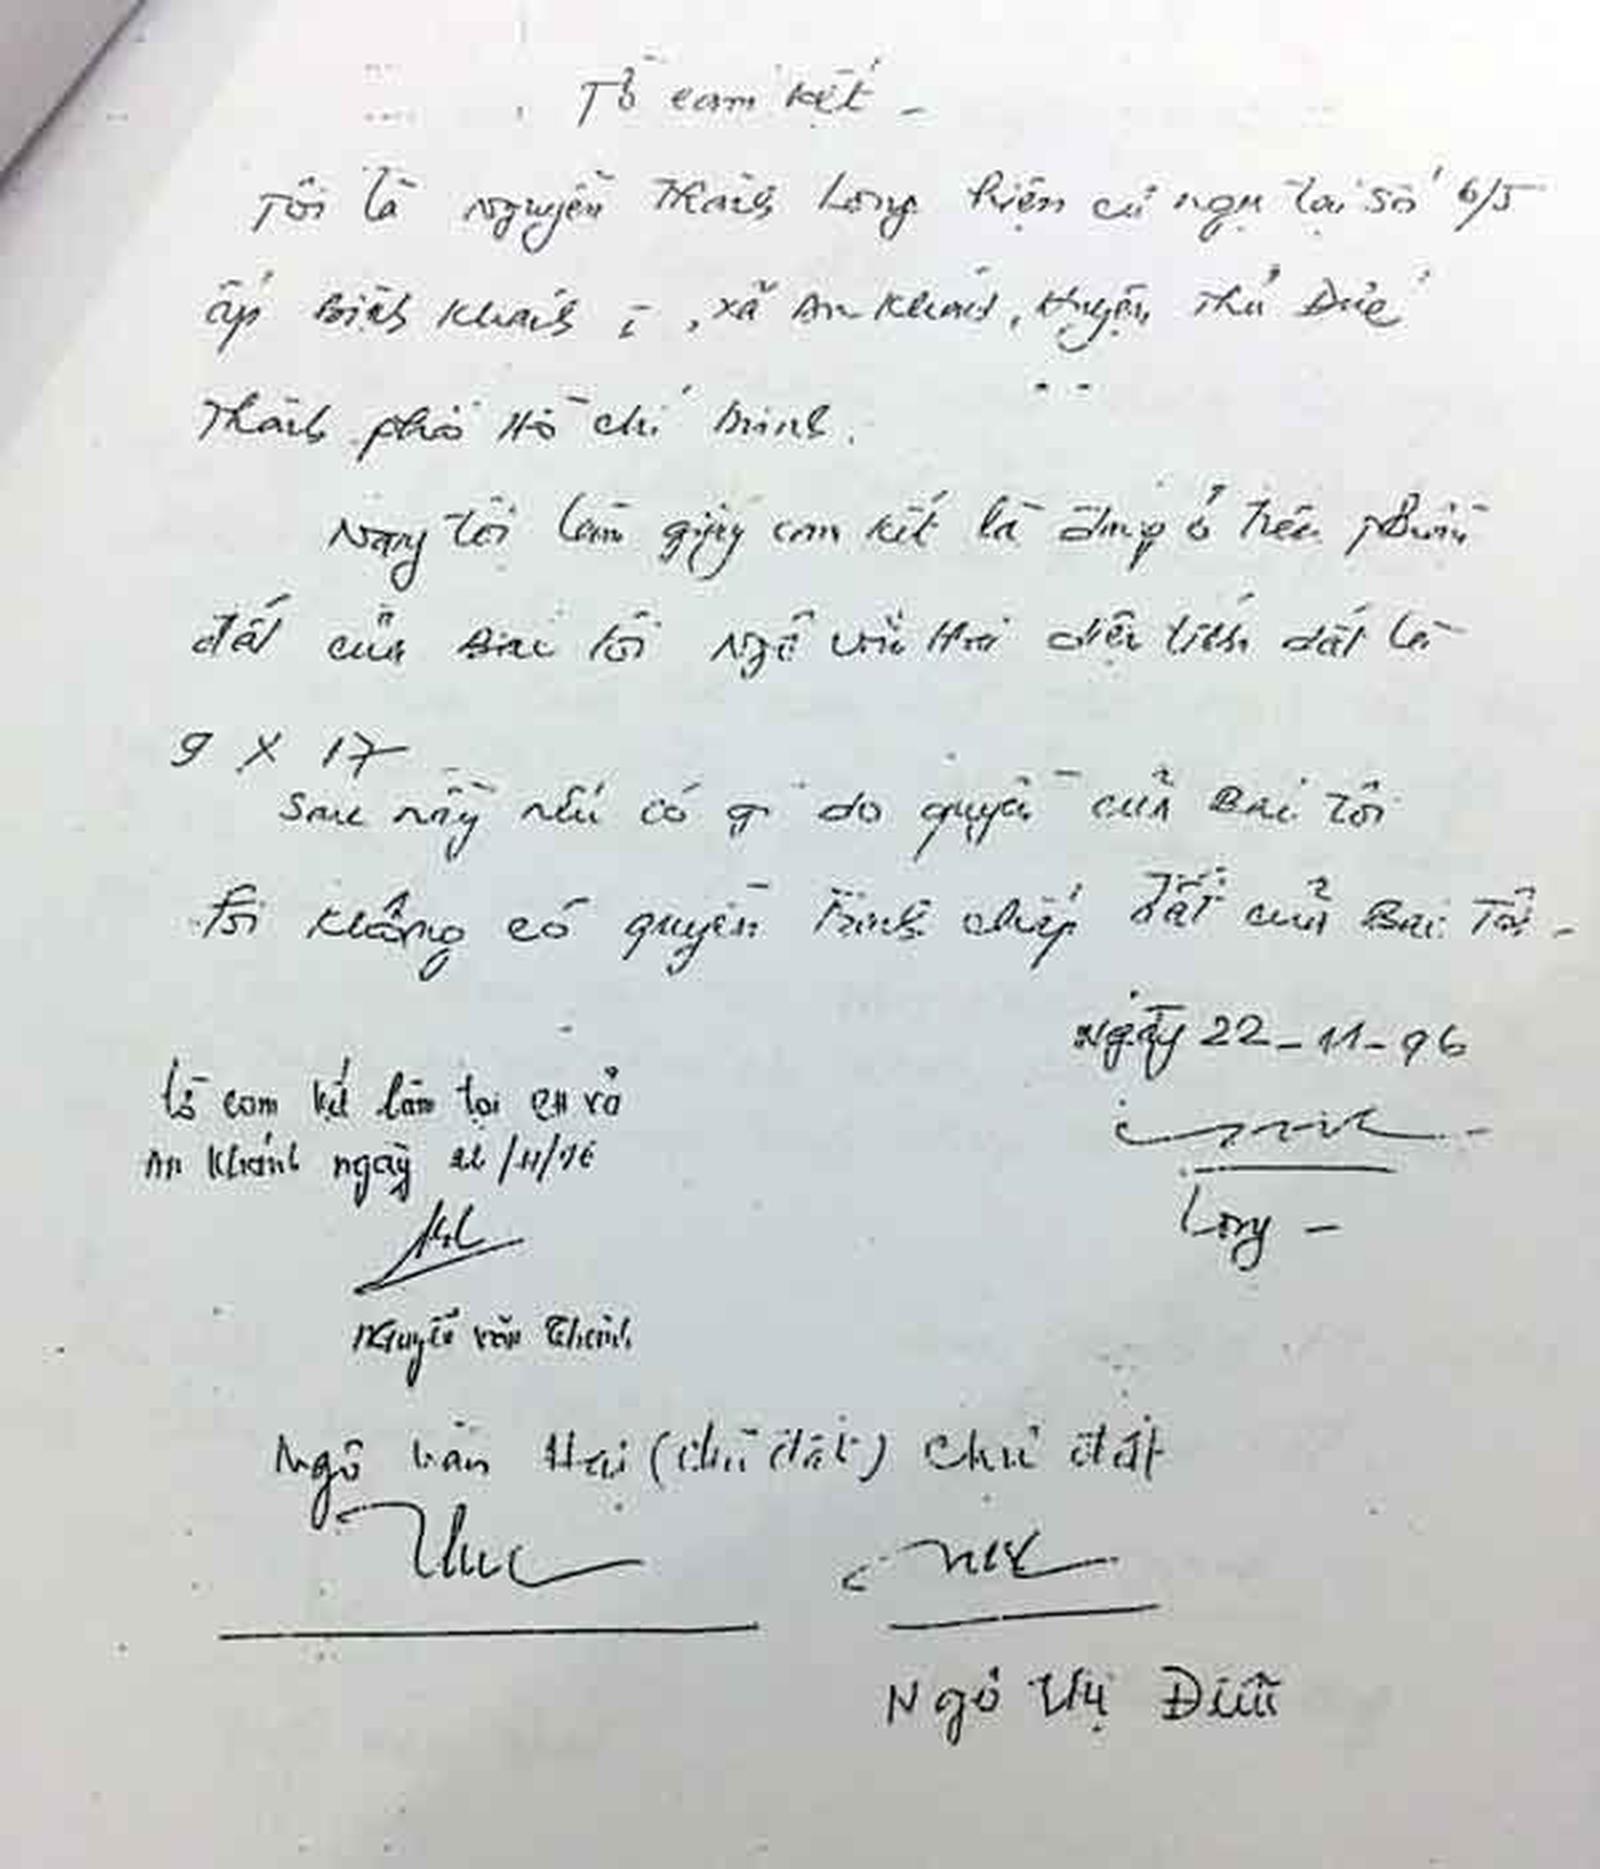 Tờ cam kết -
Tôi là Nguyễn Thành Long hiện cư ngụ tại số 6/5
ấp Bình Khánh I, xã An Khánh, Huyện Thủ Đức
Thành phố Hồ Chí Minh.
Nay tôi làm giấy cam kết là ở trên phần
đất của Bác tôi Ngô Văn Hai diện tích đất là
9 X 17
Sau này nếu có gì do quyền của Bác tôi
Tôi không có quyền tranh chấp đất của Bác Tôi -
Ngày 22-11-96
Long -
tờ cam kết làm tại xã
An Khánh ngày 22/11/96
Nguyễn Văn Thành
Ngô Văn Hai (chủ đất) Chủ đất
Ngô Thị